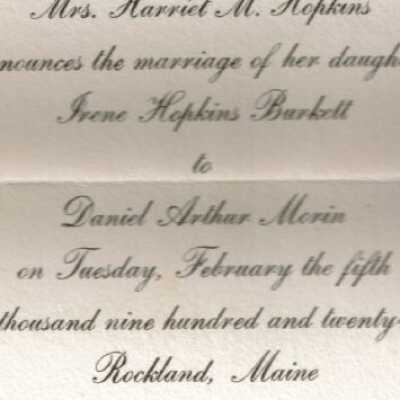 Mrs. Harriet M. Hopkins
nounces the marriage of her daugh
Irene Hopkins Burkett
to
Daniel Arthur Morin
on Tuesday, February the fifth
thousand nine hundred and twenty-
Rockland, Maine